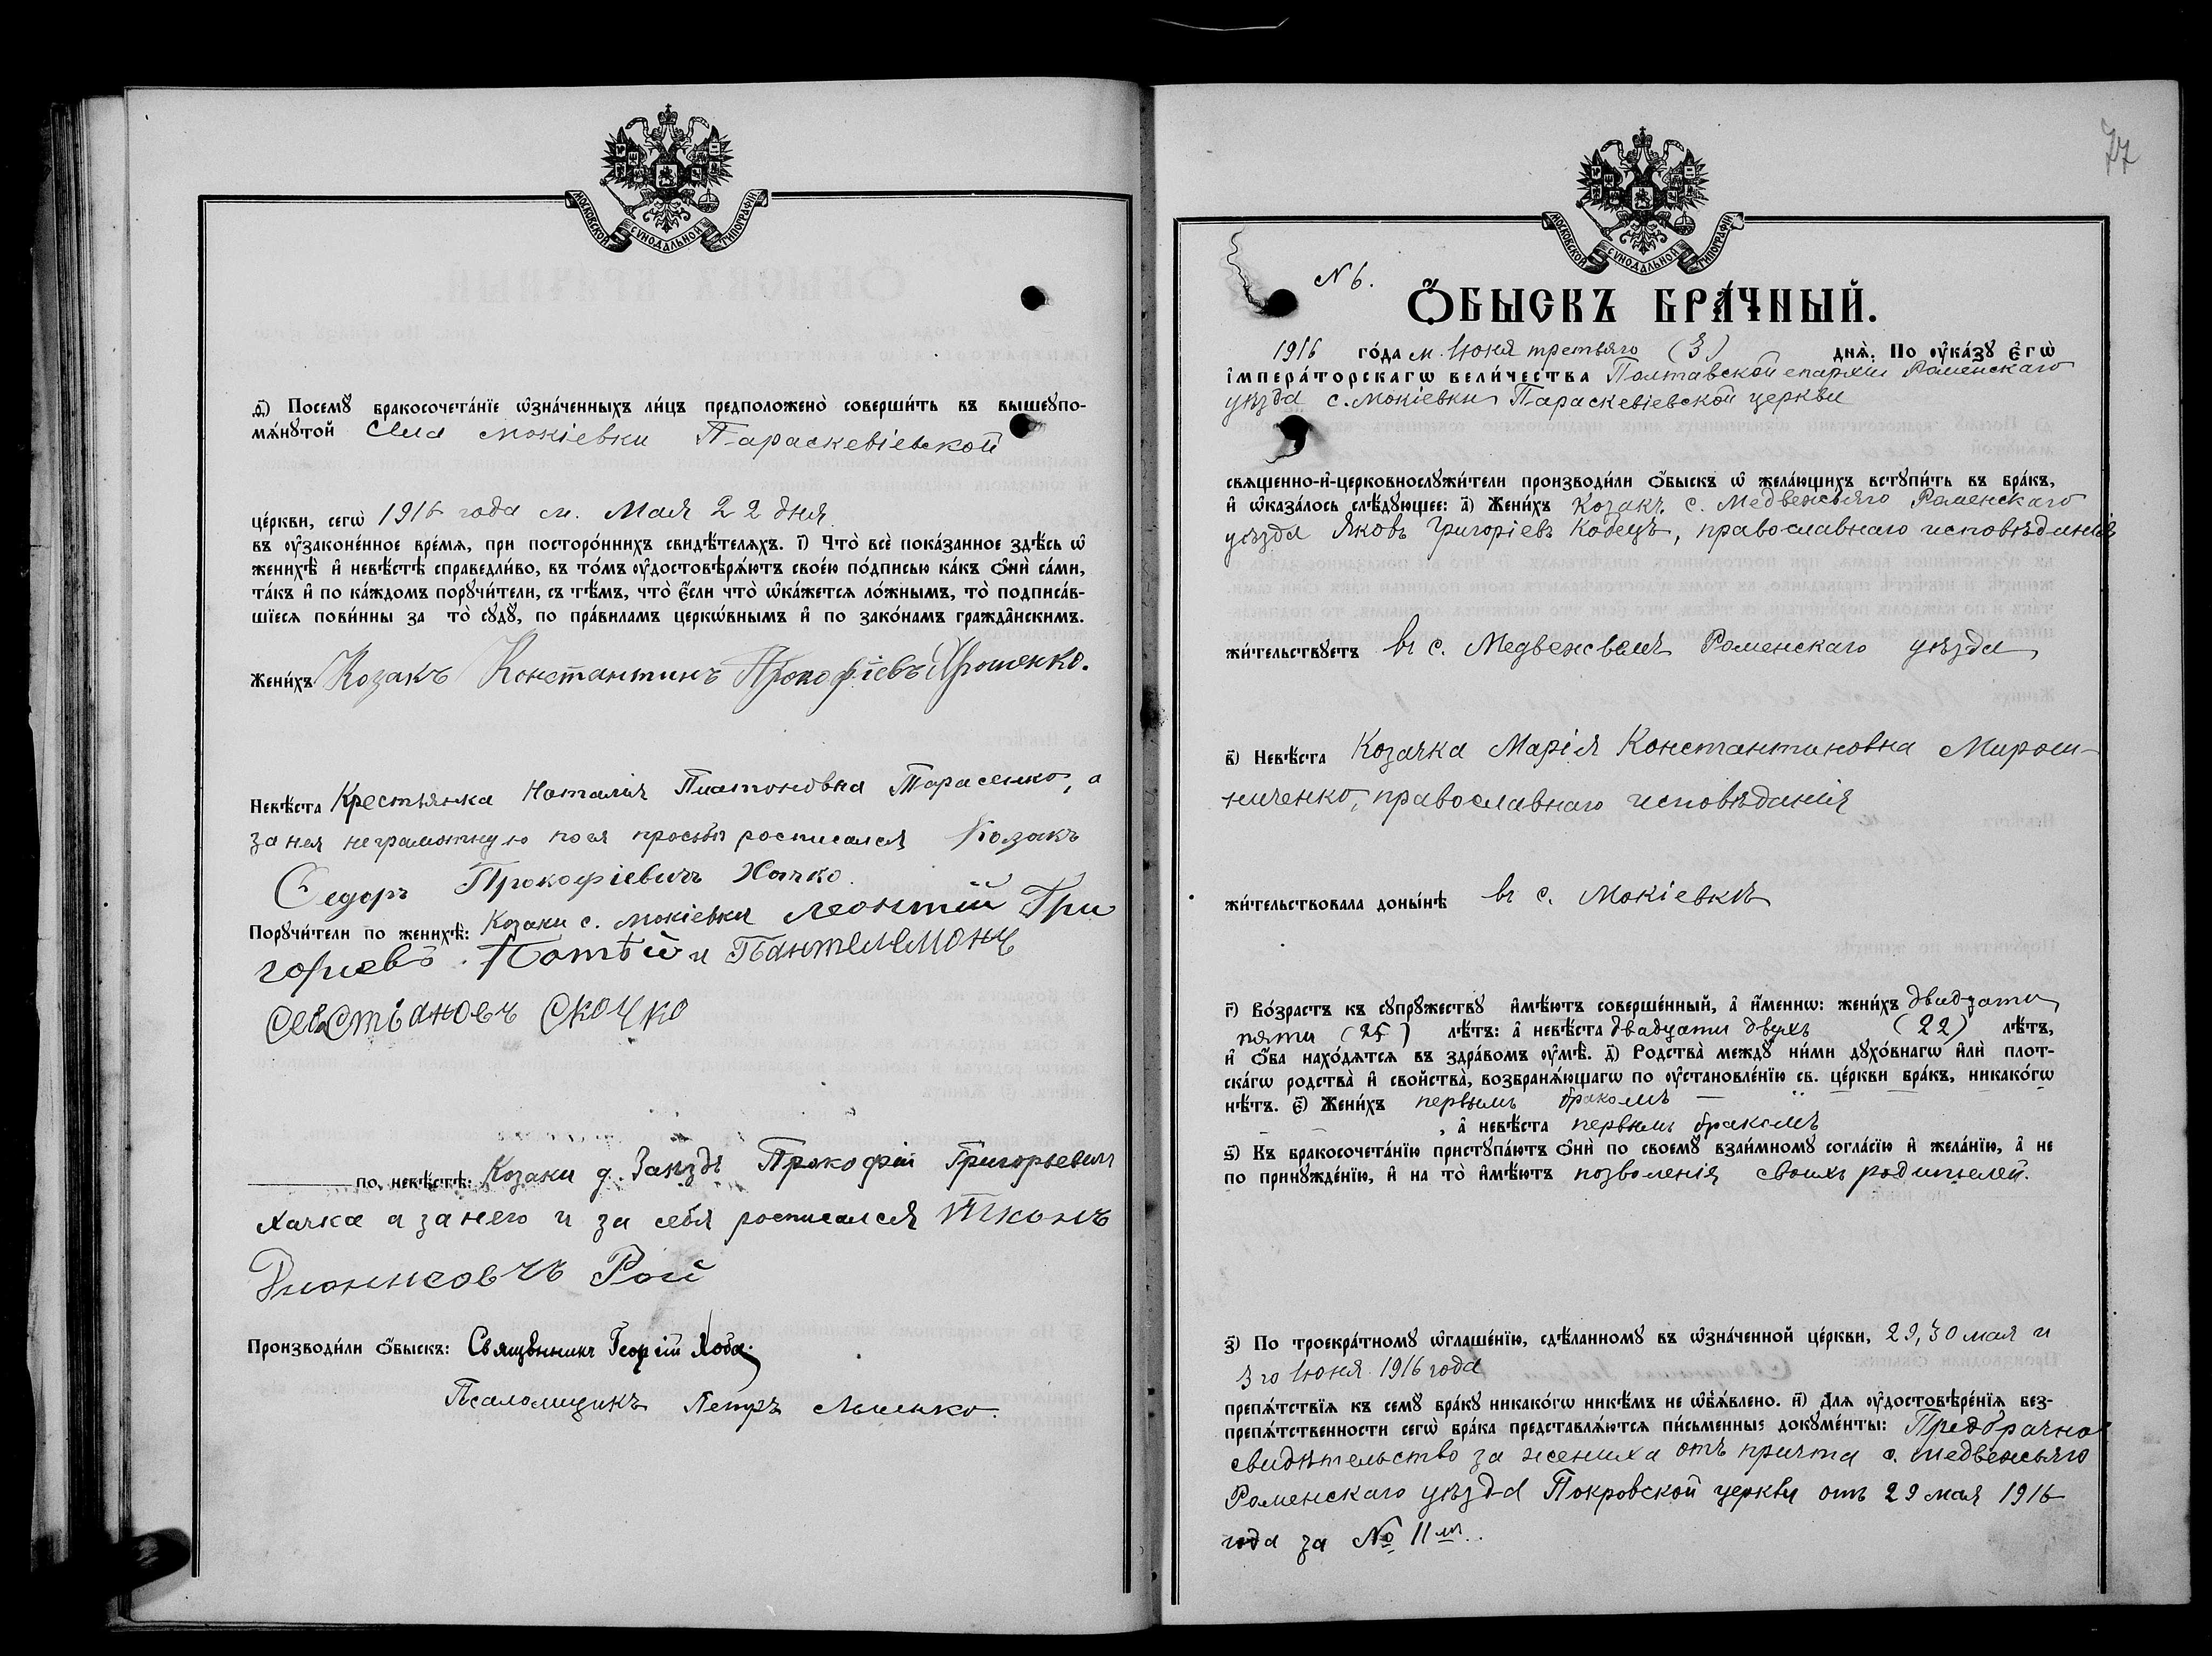 МОСКОВСКОЙ СѴНОДАЛЬНОЙ ТИПОГРАФІИ
д҃) Посемꙋ̀ бракосочета́нїе ѡ҆зна́ченныхъ ли́цъ предположено̀ соверши́ть въ вышеꙋпо-
мѧ́нꙋтой села Мокіевки Параскевіевской
це́ркви, сегѡ̀ 1916 года м. Мая 22 дня
въ ᲂу҆законе́нное вре́мѧ, при посторо́ннихъ свидѣ́телѧхъ. і҃) Что̀ всѐ пока́занное здѣ́сь ѡ҆
женихѣ̀ и҆ невѣ́стѣ справедли́во, въ то́мъ ᲂу҆достовѣрѧ́ютъ свое́ю по́дписью ка́къ ѻ҆нѝ са́ми,
та́къ и҆ по ка́ждомъ порꙋчи́тели, съ тѣ́мъ, что̀ є҆́сли что̀ ѡ҆ка́жетсѧ ло́жнымъ, то̀ подписа́в-
шїесѧ пови́нны за то̀ сꙋдꙋ̀, по пра́виламъ церкѡ́внымъ и҆ по зако́намъ гражда̑нскимъ.
Жени́хъ Козакъ Константинъ Прокофіевъ Ярошенко.
Невѣ́ста Крестьянка Наталія Платоновна Тарасенко, а
за нея неграмотную по ея просьбѣ росписался Козакъ
Федоръ Прокофіевичъ Хачко.
Порꙋчи́тели по женихѣ̀: Козаки с. Мокіевки Леонтій Гри
гориевъ Потѣй и Пантелемонъ
Севастьановъ Скочко
по невѣ́стѣ: Козаки д. Заизды Прокофій Григорьевич
Хачка а за него и за себя росписался Тихонъ
Дионисовчъ Рой
Производи́ли ѻ҆́быскъ: Священникъ Георгій Хоба.
Псаломщикъ Петръ Лысенко.
77
МОСКОВСКОЙ СѴНОДАЛЬНОЙ ТИПОГРАФІИ
N 6.
Ѻ҆́БЫСКЪ БРА́ЧНЫЙ.
1916 го́да м. Іюня третьяго (3) днѧ̀. По ᲂу҆ка́зꙋ є҆гѡ̀
і҆мпера́торскагѡ вели́чества Полтавской епархіи Роменскаго
уѣзда с. Мокіевки Параскевіевской церкви
свѧщенно-и҆-церковнослꙋжи́тели производи́ли ѻ҆́быскъ ѡ҆ жела́ющихъ встꙋпи́ть въ бра́къ,
и҆ ѡ҆каза́лось слѣ́дꙋющее: а҃) Жени́хъ Козакъ с. Медвежьяго Роменскаго
уѣзда Яковъ Григоріевъ Кобецъ, православнаго исповѣданія
жи́тельствꙋетъ въ с. Медвежьемъ Роменскаго уѣзда
в҃) Невѣ́ста Козачка Марія Константиновна Мирош-
ниченко, православнаго исповѣданія
жи́тельствовала доны́нѣ въ с. Мокіевкѣ
г҃) Во́зрастъ къ сꙋпрꙋ́жествꙋ и҆мѣ́ютъ соверше́нный, а҆ и҆́меннѡ: жени́хъ двадцати
пяти (25) лѣ́тъ: а҆ невѣ́ста двадцати двухъ (22) лѣ́тъ,
и҆ ѻ҆́ба нахо́дѧтсѧ въ здра́вомъ ᲂу҆мѣ̀. д҃) Родства̀ междꙋ̀ ни́ми дꙋхо́внагѡ и҆лѝ плот-
ска́гѡ родства̀ и҆ свойства̀, возбранѧ́ющагѡ по ᲂу҆становле́нїю св. це́ркви бра́къ, никако́гѡ
нѣ́тъ. є҃) Жени́хъ первымъ бракомъ —
, а҆ невѣ́ста первымъ бракомъ
ѕ҃) Къ бракосочета́нїю пристꙋпа́ютъ ѻ҆нѝ по своемꙋ̀ взаи́мномꙋ согла́сїю и҆ жела́нїю, а҆ не
по принꙋжде́нїю, и҆ на то̀ и҆мѣ́ютъ позволенія своихъ родителей.
з҃) По троекра́тномꙋ ѡ҆глаше́нїю, сдѣ́ланномꙋ въ ѡ҆зна́ченной це́ркви, 29, 30 мая и
3го Іюня 1916 года
препѧ́тствїѧ къ семꙋ̀ бра́кꙋ никако́гѡ никѣ́мъ не ѡ҆б̾ѧ́влено. и҃) Длѧ ᲂу҆достовѣре́нїѧ без-
препѧ́тственности сегѡ̀ бра́ка представлѧ́ютсѧ пи́сьменные докꙋме́нты: Предбрачное
свидѣтельство за жениха отъ причта с. Медвежьяго
Роменскаго уѣзда Покровской церкви отъ 29 мая 1916
года за № 11м.